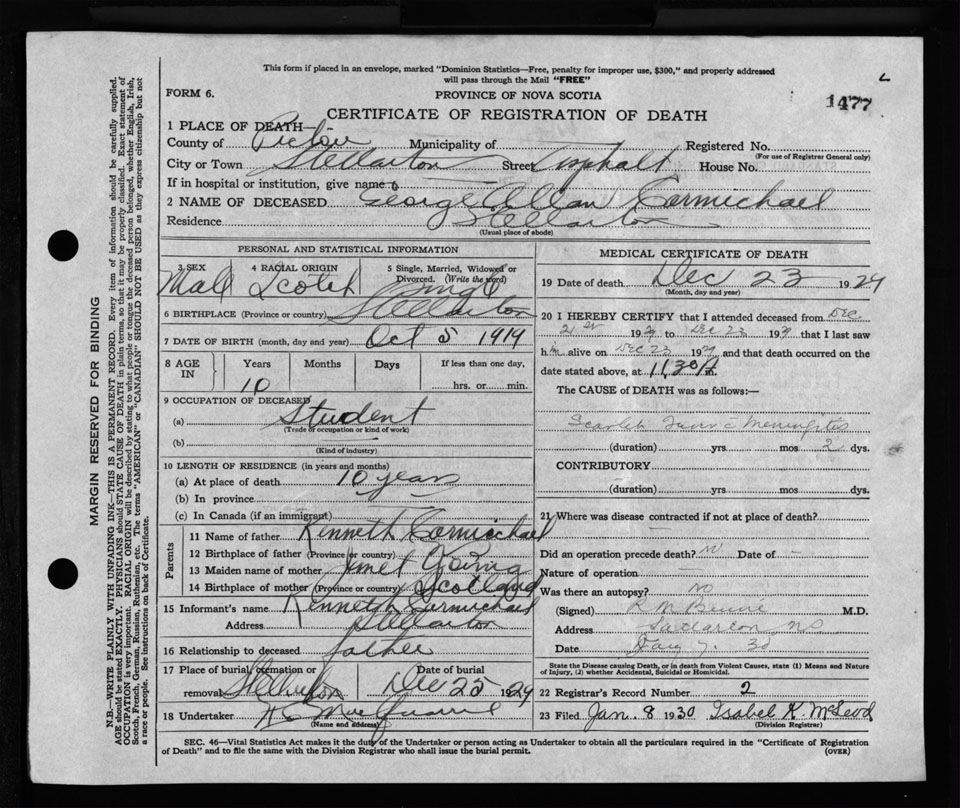 This form if placed in an envelope, marked "Dominion Statistics—Free, penalty for improper use, $300," and properly addressed
will pass through the Mail "FREE"
FORM 6.
PROVINCE OF NOVA SCOTIA
1477
CERTIFICATE OF REGISTRATION OF DEATH
1 PLACE OF DEATH—
County of Pictou Municipality of Registered No.
(For use of Registrar General only)
City or Town Stellarton Street Asphalt House No.
If in hospital or institution, give name
2 NAME OF DECEASED George Allan Carmichael
Residence Stellarton
(Usual place of abode)
PERSONAL AND STATISTICAL INFORMATION
3 SEX 4 RACIAL ORIGIN 5 Single, Married, Widowed or
Divorced. (Write the word)
Male Scotch Single
6 BIRTHPLACE (Province or country) Stellarton
7 DATE OF BIRTH (month, day and year) Oct 5 1919
8 AGE IN Years Months Days If less than one day,
10 hrs. or min.
9 OCCUPATION OF DECEASED
(a) Student
(Trade or occupation or kind of work)
(b)
(Kind of industry)
10 LENGTH OF RESIDENCE (in years and months)
(a) At place of death 10 years
(b) In province
(c) In Canada (if an immigrant)
Parents
11 Name of father Kenneth Carmichael
12 Birthplace of father (Province or country)
13 Maiden name of mother Janet Young
14 Birthplace of mother (Province or country) Scotland
15 Informant's name Kenneth Carmichael
Address Stellarton
16 Relationship to deceased father
17 Place of burial, cremation or removal Stellarton Date of burial Dec 25 1929
18 Undertaker
(Name and address)
MEDICAL CERTIFICATE OF DEATH
19 Date of death Dec 23 1929
(Month, day and year)
20 I HEREBY CERTIFY that I attended deceased from Dec
21st 1929 to Dec 23 1929 that I last saw
him alive on Dec 23 1929 and that death occurred on the
date stated above, at 11.30 m.
The CAUSE OF DEATH was as follows:—
Scarlet Meningitis
(duration) yrs mos 2 dys.
CONTRIBUTORY
(duration) yrs mos dys.
21 Where was disease contracted if not at place of death?
Did an operation precede death? no Date of
Nature of operation
Was there an autopsy? no
(Signed) M.D.
Address Stellarton NS
Date Jan 7. 30
State the Disease causing Death, or in death from Violent Causes, state (1) Means and Nature
of Injury, (2) whether Accidental, Suicidal or Homicidal.
22 Registrar's Record Number 2
23 Filed Jan. 8 1930 Isabel K McLeod
(Division Registrar)
SEC. 46—Vital Statistics Act makes it the duty of the Undertaker or person acting as Undertaker to obtain all the particulars required in the "Certificate of Registration
of Death" and to file the same with the Division Registrar who shall issue the burial permit.
(OVER)
MARGIN RESERVED FOR BINDING
N.B.—WRITE PLAINLY WITH UNFADING INK—THIS IS A PERMANENT RECORD. Every item of information should be carefully supplied.
AGE should be stated EXACTLY. PHYSICIANS should STATE CAUSE OF DEATH in plain terms, so that it may be properly classified. Exact statement of
OCCUPATION is very important. RACIAL ORIGIN will be described by stating to what people or tongue the deceased person belonged, whether English, Irish,
Scotch, French, German, Russian, Ruthenian, etc. The terms "AMERICAN" or "CANADIAN" SHOULD NOT BE USED as they express citizenship but not
a race or people. See instructions on back of Certificate.